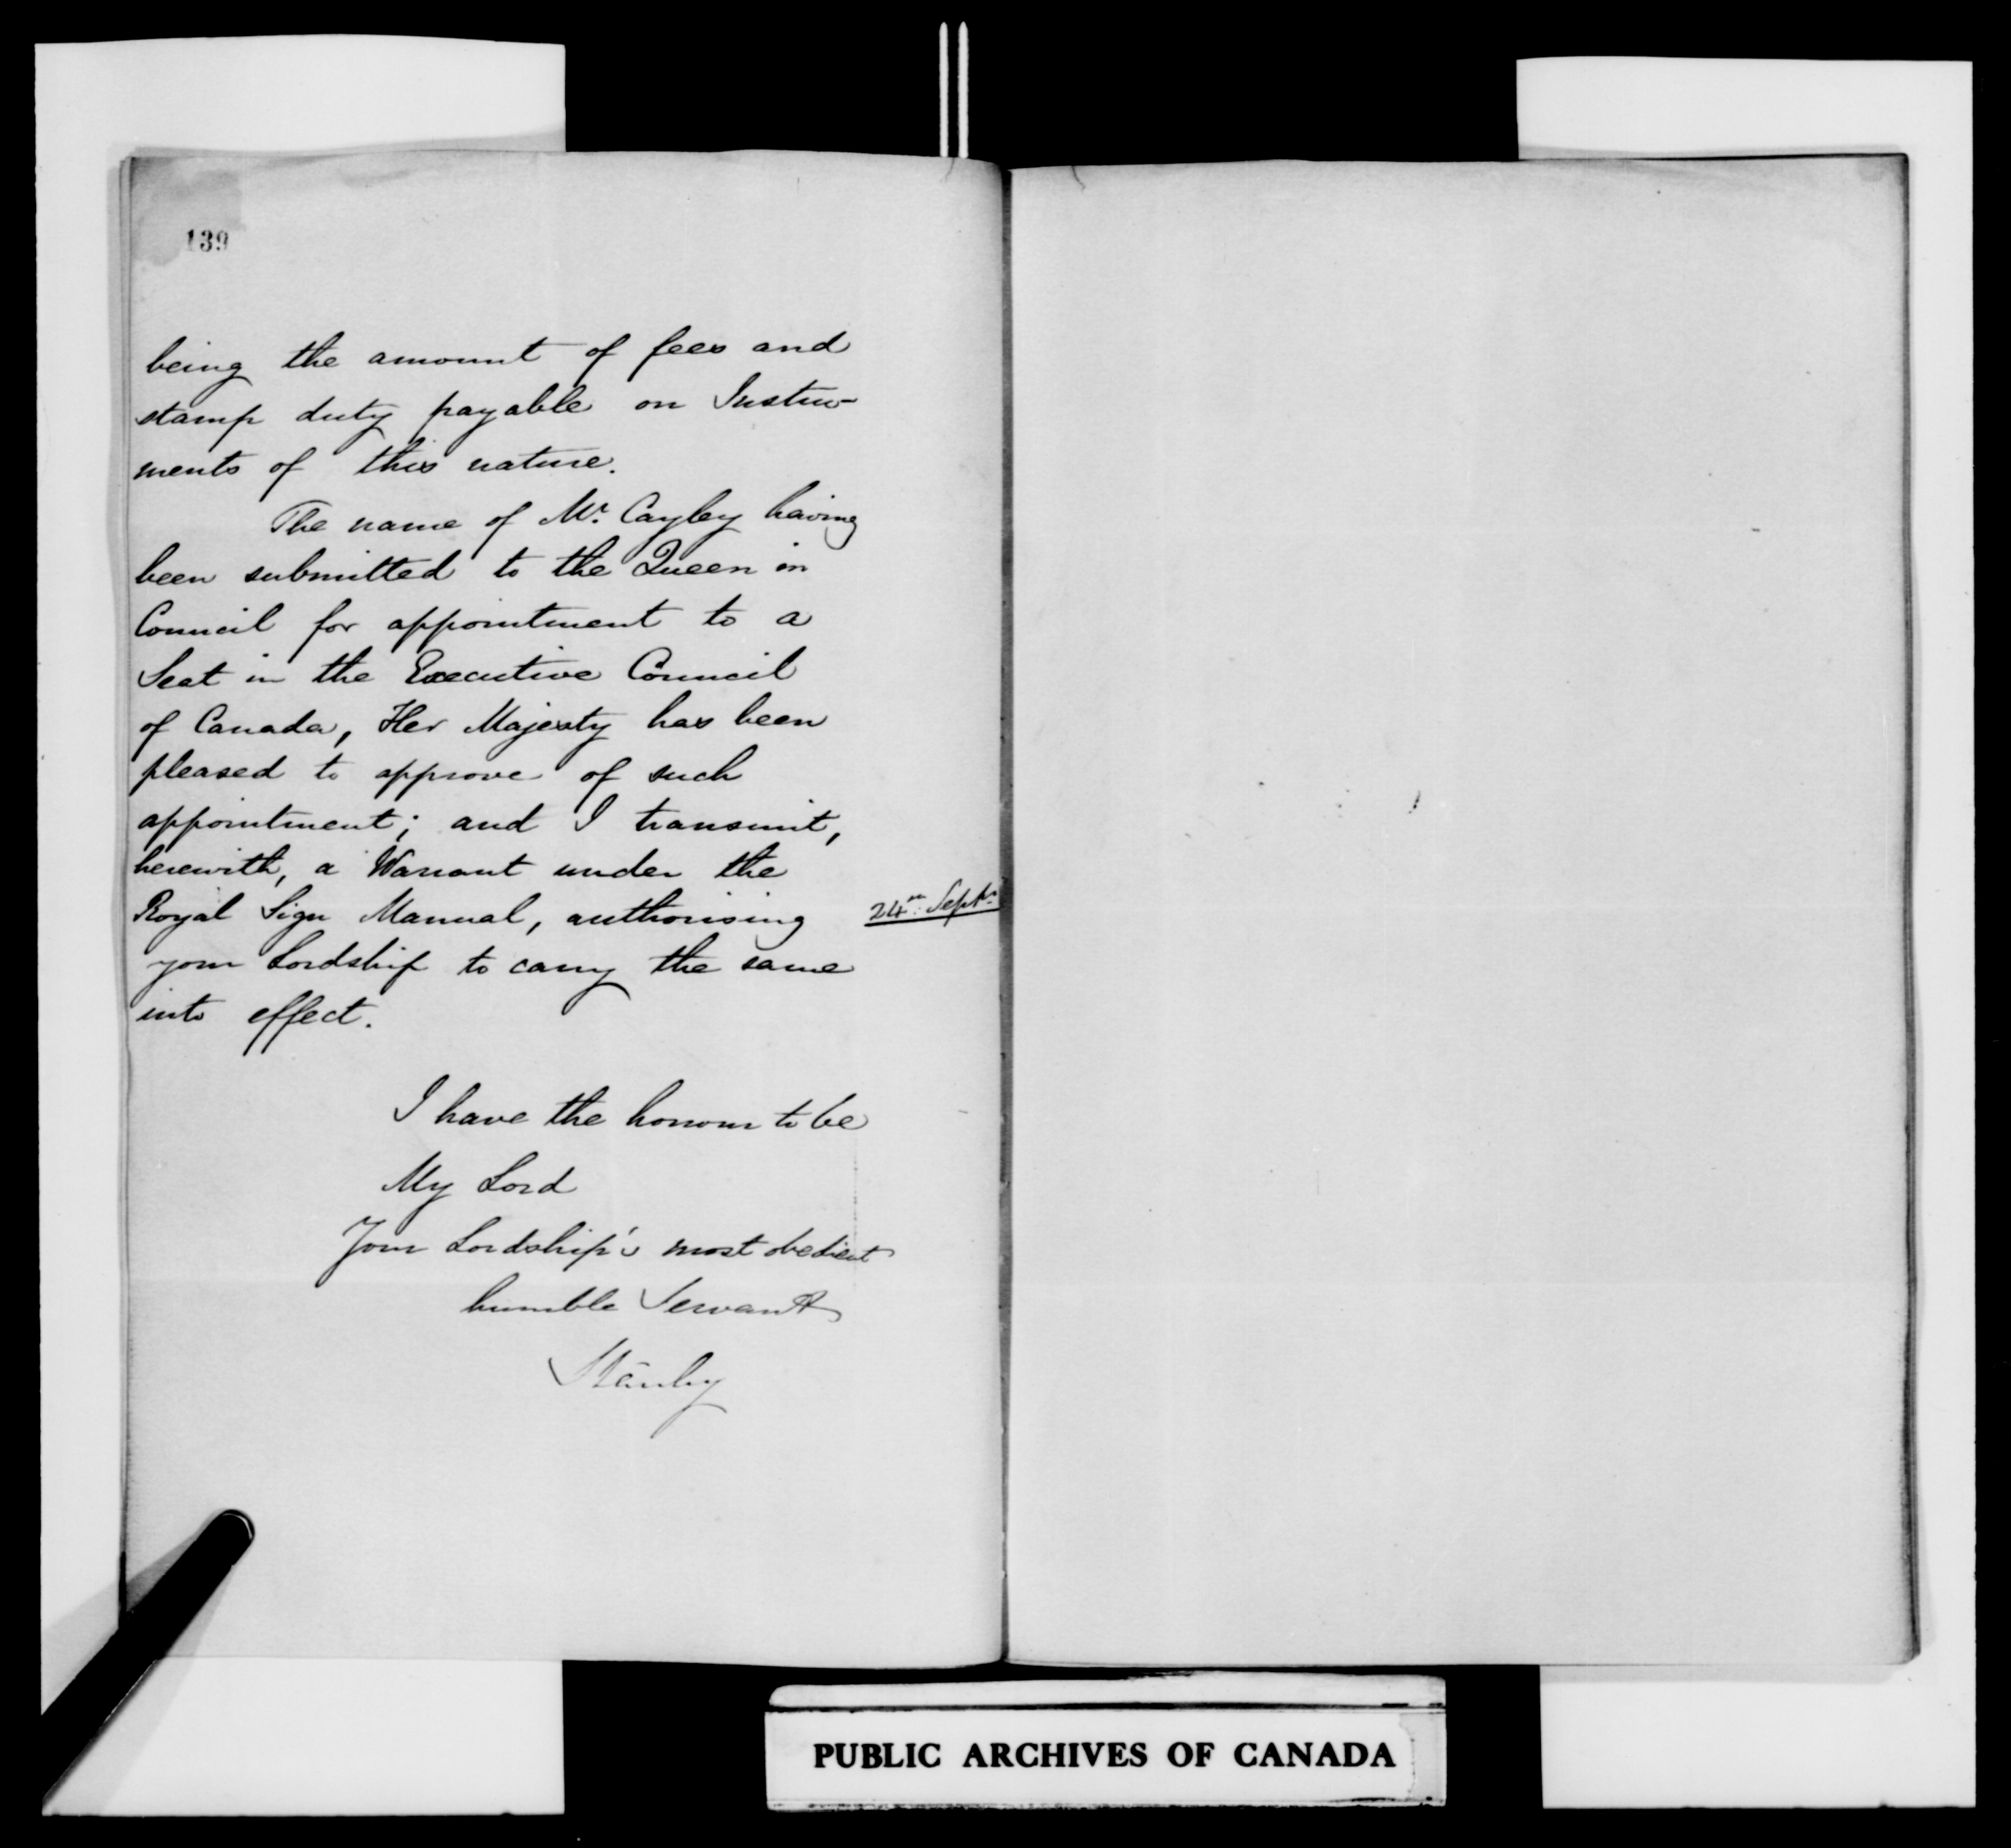 139
being the amount of fees and
stamp duty payable on Instru-
ments of this nature.
The name of Mr. Cayley having
been submitted to the Queen in
Council for appointment to a
Seat in the Executive Council
of Canada, Her Majesty has been
pleased to approve of such
appointment; and I transmit,
herewith, a Warrant under the
Royal Sign Manual, authorising
24th Septr.
your Lordship to carry the same
into effect.
I have the honour to be
My Lord
Your Lordship's most obedient
humble Servant
Stanley
PUBLIC ARCHIVES OF CANADA